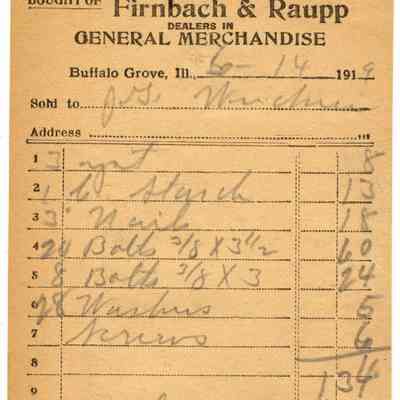 BOUGHT OF
Firnbach & Raupp
DEALERS IN
GENERAL MERCHANDISE
Buffalo Grove, Ill., 6-14 1919
Sold to J.G.
Address
1 3 8
2 1 Starch 13
3 3 Nails 18
4 24 Bolts 3/8 X 3 1/2 60
5 8 Bolts 3/8 X 3 24
6 28 Washers 5
7 Screws 6
8 1 34
9